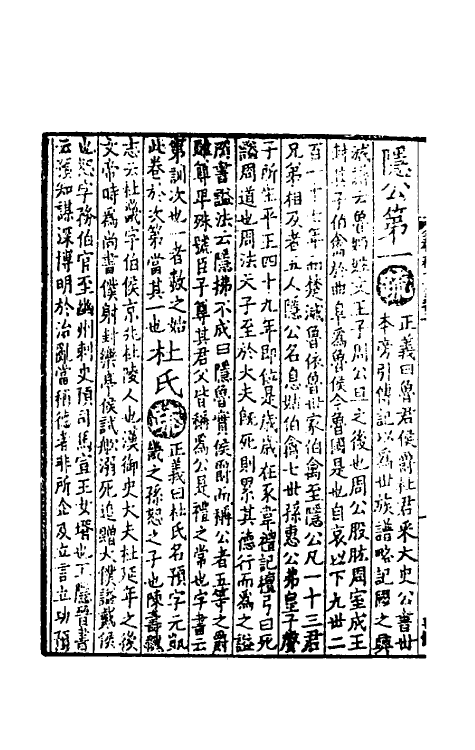 隱公第一 疏 正義曰魯君侯爵杜君采大史公書世
本旁引傳記以爲世族譜略記國之興
族譜云魯姬姓文王子周公旦之後也周公股肱周室成王
封其子伯禽於曲阜爲魯侯今魯國是也自哀以下九世二
百一十七年而楚滅魯依魯世家伯禽至隱公凡一十三君
兄弟相及者五人隱公名息姑伯禽七世孫惠公弗皇子聲
子所生平王四十九年即位是歲歲在豕韋禮記檀弓曰死
謚周道也周法天子至於大夫既死則累其德行而爲之謚
周書謚法云隱拂不成曰隱魯實侯爵而稱公者五等之爵
雖尊卑殊號臣子尊其君父皆稱爲公是禮之常也字書云
第訓次也一者數之始
此卷於次第當其一也 杜氏 疏 正義曰杜氏名預字元凱
畿之孫恕之子也陳壽魏
志云杜畿字伯侯京兆杜陵人也漢御史大夫杜延年之後
文帝時爲尚書僕射封樂亭侯試船溺死追贈大僕謚戴侯
也恕字務伯官至幽州刺史預司馬宣王女壻也王隱晉書
云預知謀深博明於治亂當稱德者非所企及立言立功預